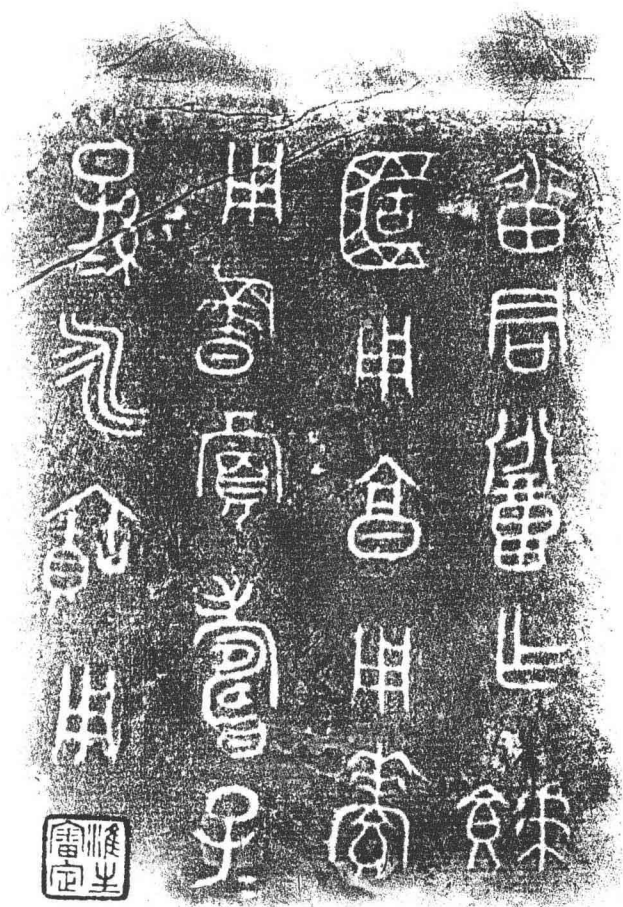 番君召乍餗
匠用亯用養
用祈眉壽子=
孫=永寶用
淮生審定